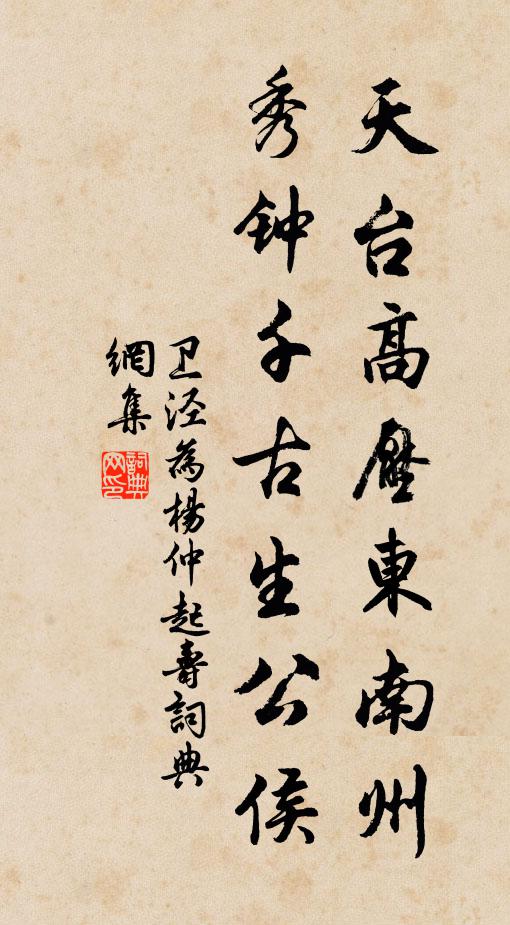 天台高壓東南州
秀钟千古生公侯
卫泾為楊仲起壽詞典
網集
詞典網印